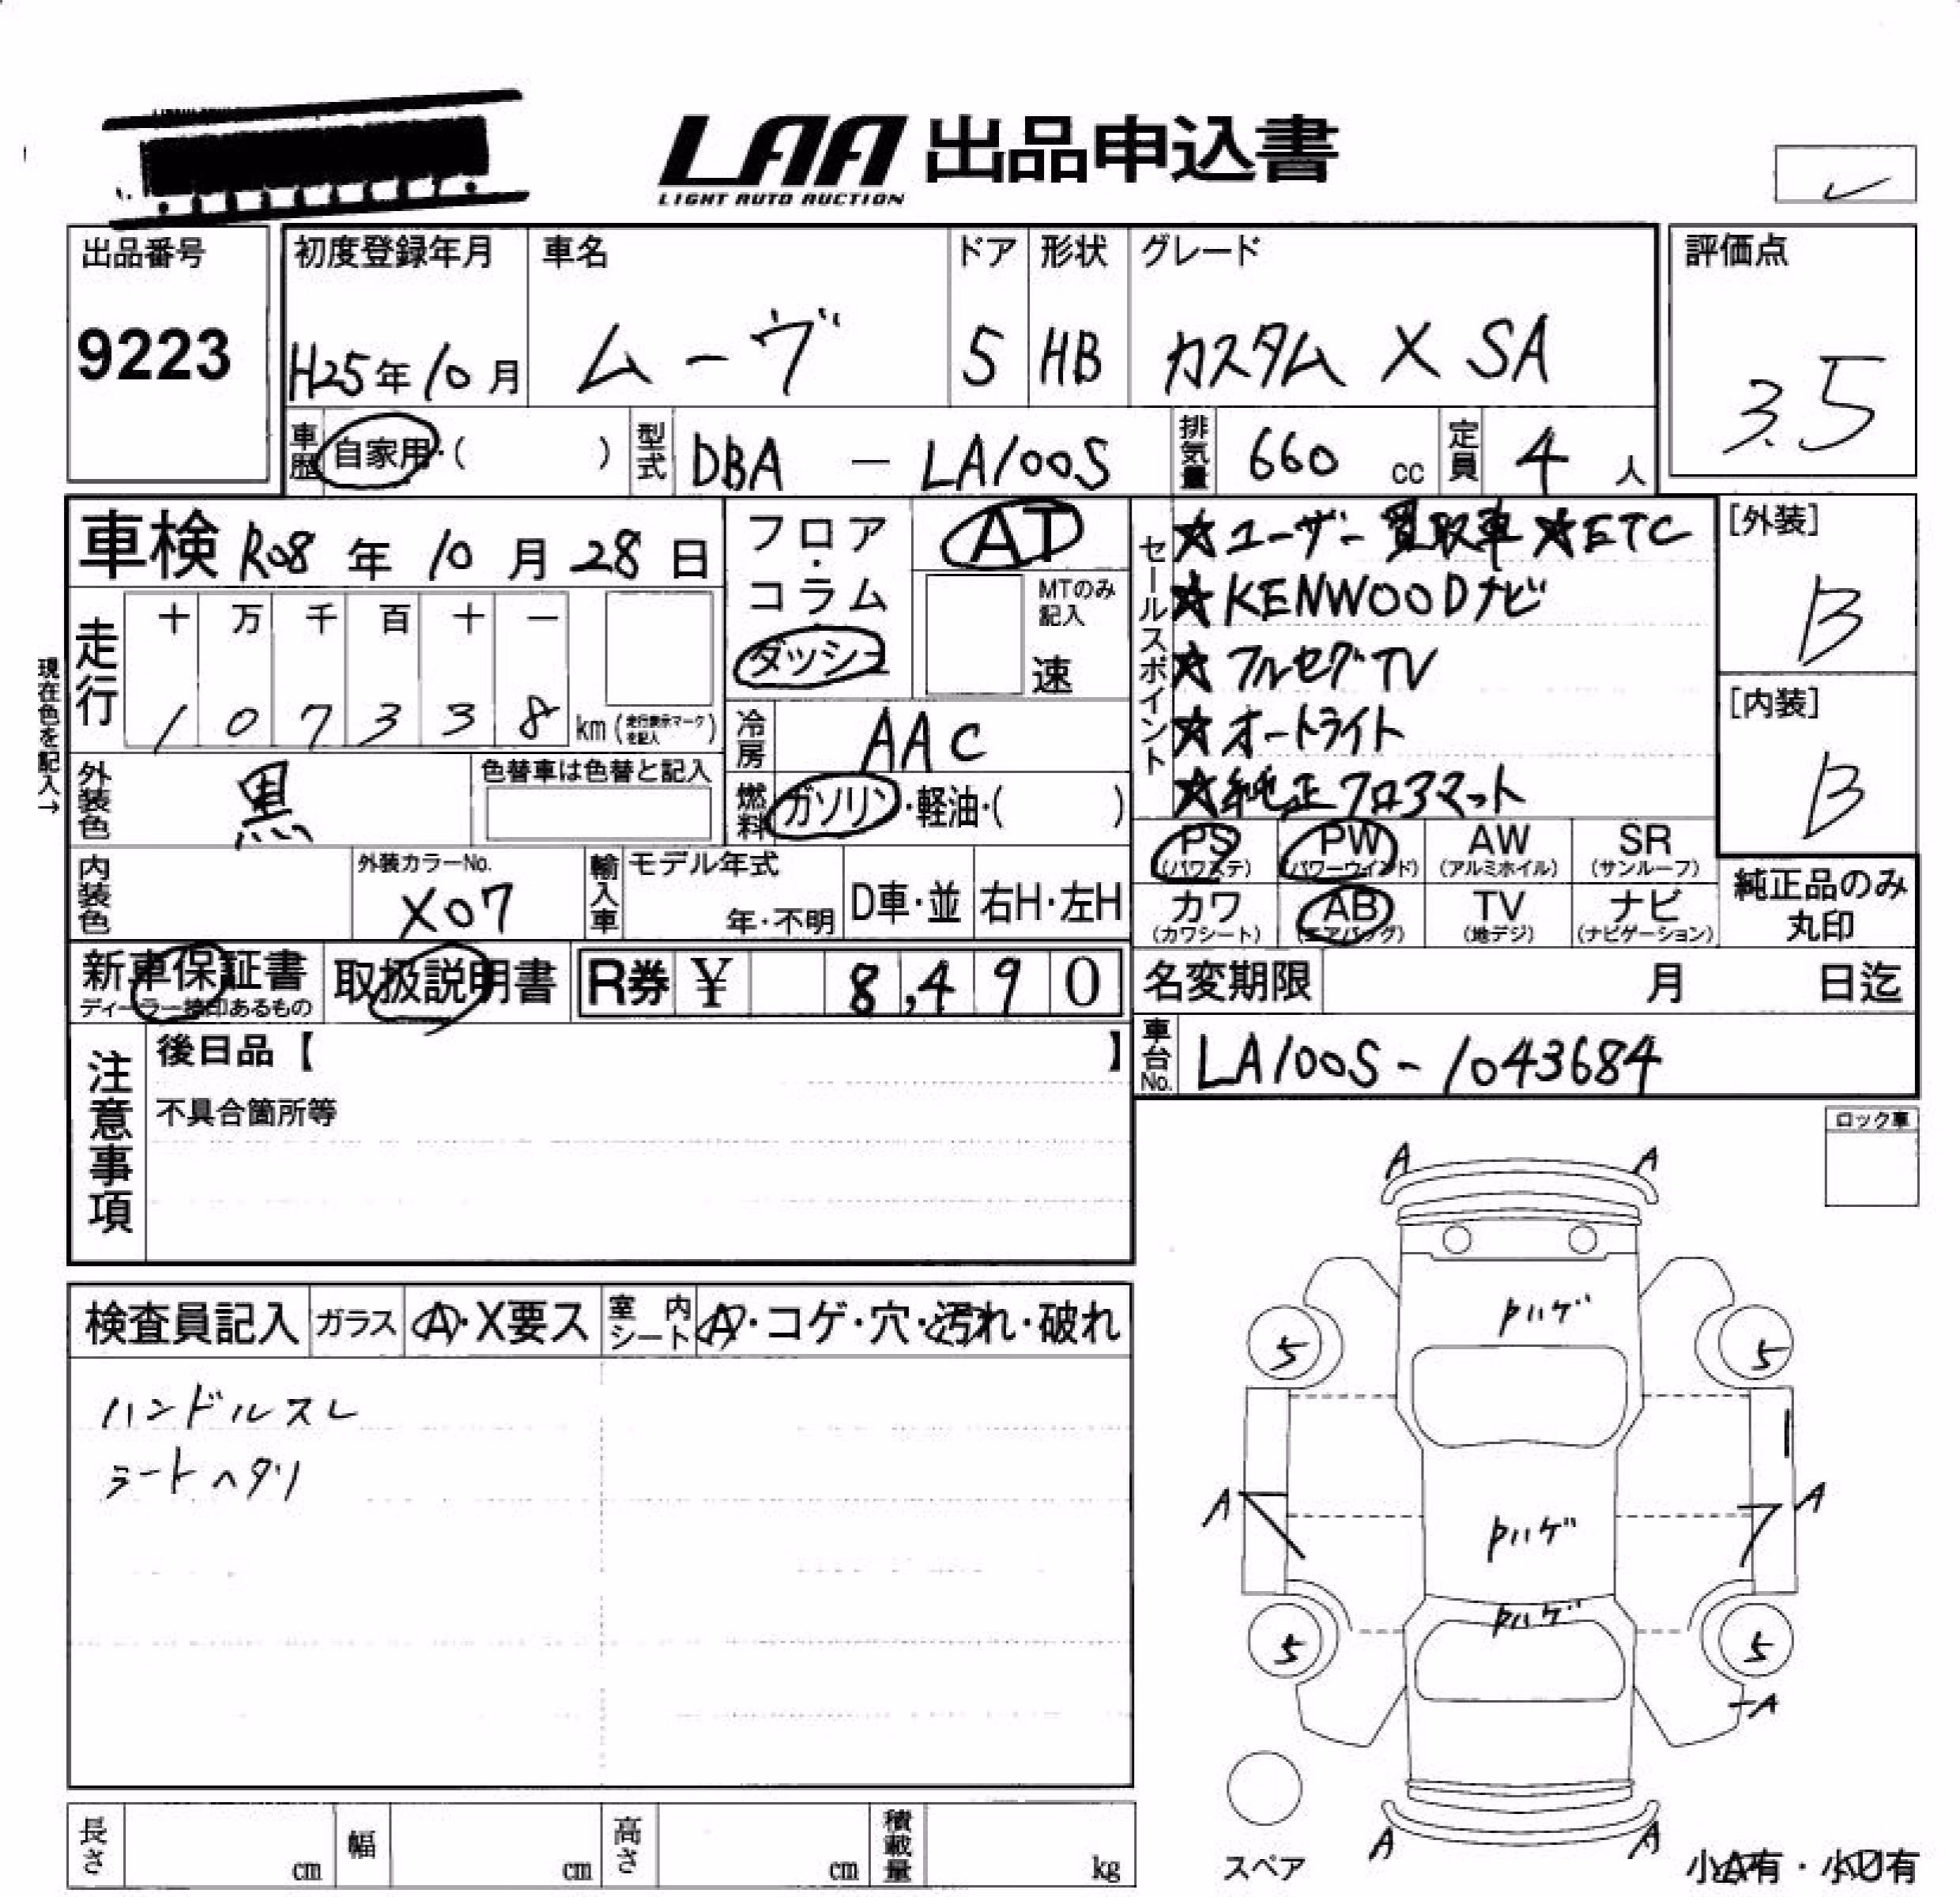 LAA 出品申込書
LIGHT AUTO AUCTION
出品番号
9223
初度登録年月 車名 ドア 形状 グレード
H25年10月 ムーヴ 5 HB カスタム X SA
評価点
3.5
車歴 自家用・( ) 型式 DBA - LA100S 排気量 660 cc 定員 4 人
車検 R08 年 10 月 28 日
フロア・コラム
ダッシュ
AT
MTのみ記入
速
セールスポイント
☆ユーザー買取車 ☆ETC
☆KENWOODナビ
☆フルセグTV
☆オートライト
☆純正フロアマット
[外装]
B
[内装]
B
現在色を記入→
走行
十 万 千 百 十 一
1 0 7 3 3 8 km (走行表示マークを記入)
冷房 AAC
外装色 黒 色替車は色替と記入
燃料 ガソリン・軽油・( )
PS AW SR
PW
(パワステ) (パワーウインド) (アルミホイル) (サンルーフ)
カワ AB TV ナビ
(カワシート) (エアバッグ) (地デジ) (ナビゲーション)
純正品のみ
丸印
内装色 外装カラーNo. X07 輸入車 モデル年式 年・不明 D車・並 右H・左H
新車保証書 取扱説明書 R券 ¥ 8,490
ディーラー捺印あるもの
名変期限 月 日迄
車台No. LA100S-1043684
注意事項
後日品【 】
不具合箇所等
ロック車
検査員記入 ガラス A・X要ス 室内シート A・コゲ・穴・汚れ・破れ
ハンドルスレ
シートヘタリ
A A
Pハゲ
5 5
A A
Pハゲ
Pハゲ
5 5
A
A A
スペア
小A有・小U有
長さ cm 幅 cm 高さ cm 積載量 kg